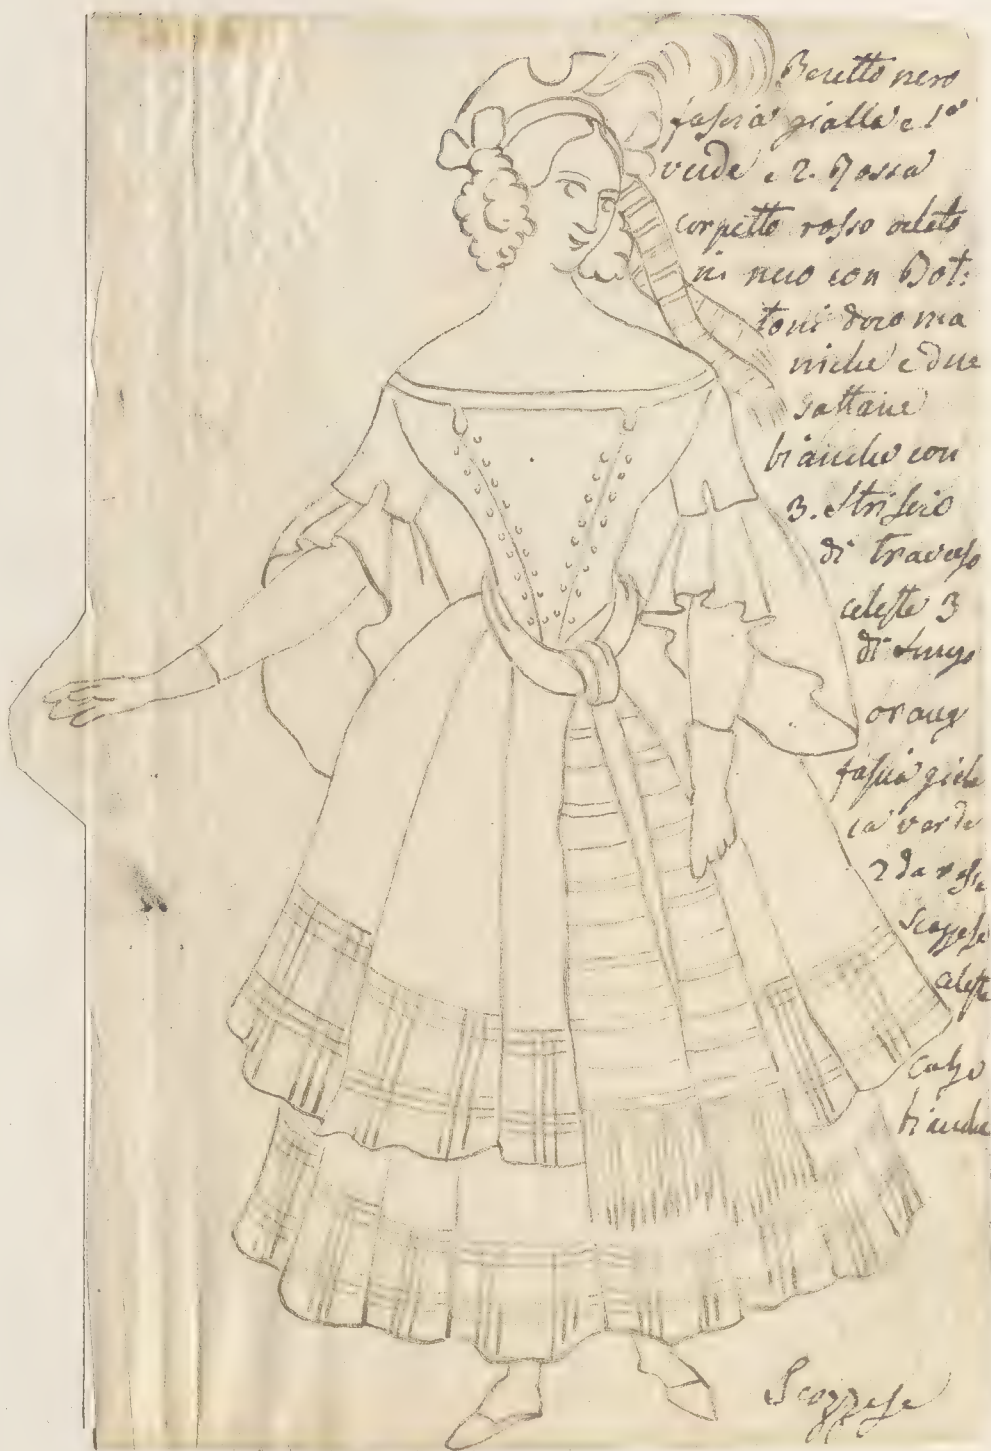 Beretto nero
fascia gialla e 1ª
verde e 2. Rossa
corpetto rosso orlato
in nero con Bot:
toni doro ma
niche e due
sottane
bianche con
3. striscie
di traverso
celeste 3
di lungo
orang
fascia gial
verde
2 da rossa
scozzese
celeste
calze
bianche
Scozzese